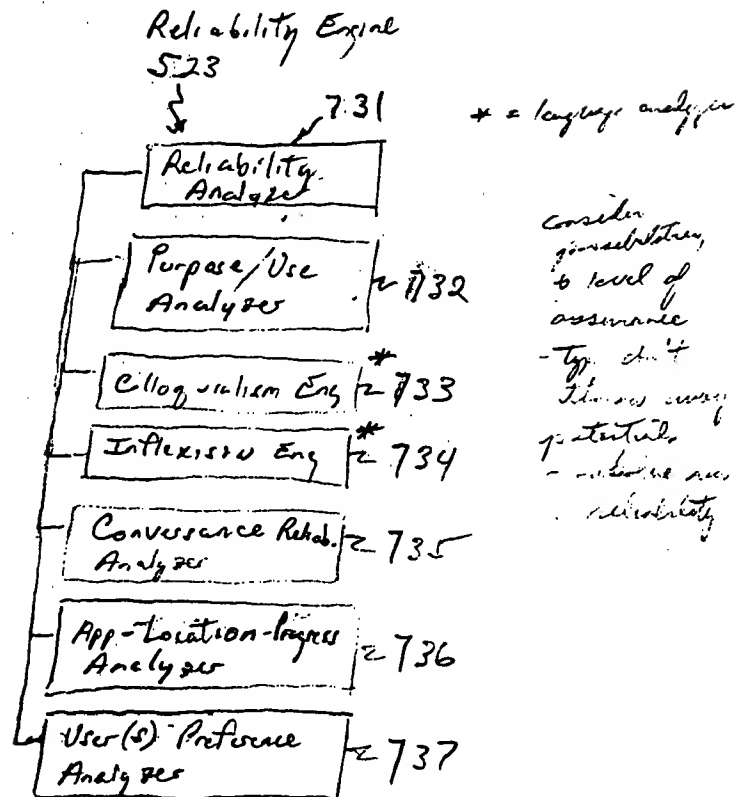 Reliability Engine
523
731
* = language analyzer
Reliability
Analyzer
Purpose/Use
Analyzer
732
Colloquialism Eng * 733
Inflexison Eng * 734
Conversance Reliab.
Analyzer
735
App-Location-Progress
Analyzer
736
User(s) Preference
Analyzer
737
consider
to level of
assurance
- Typ. don't
throw away
potentials
reliability